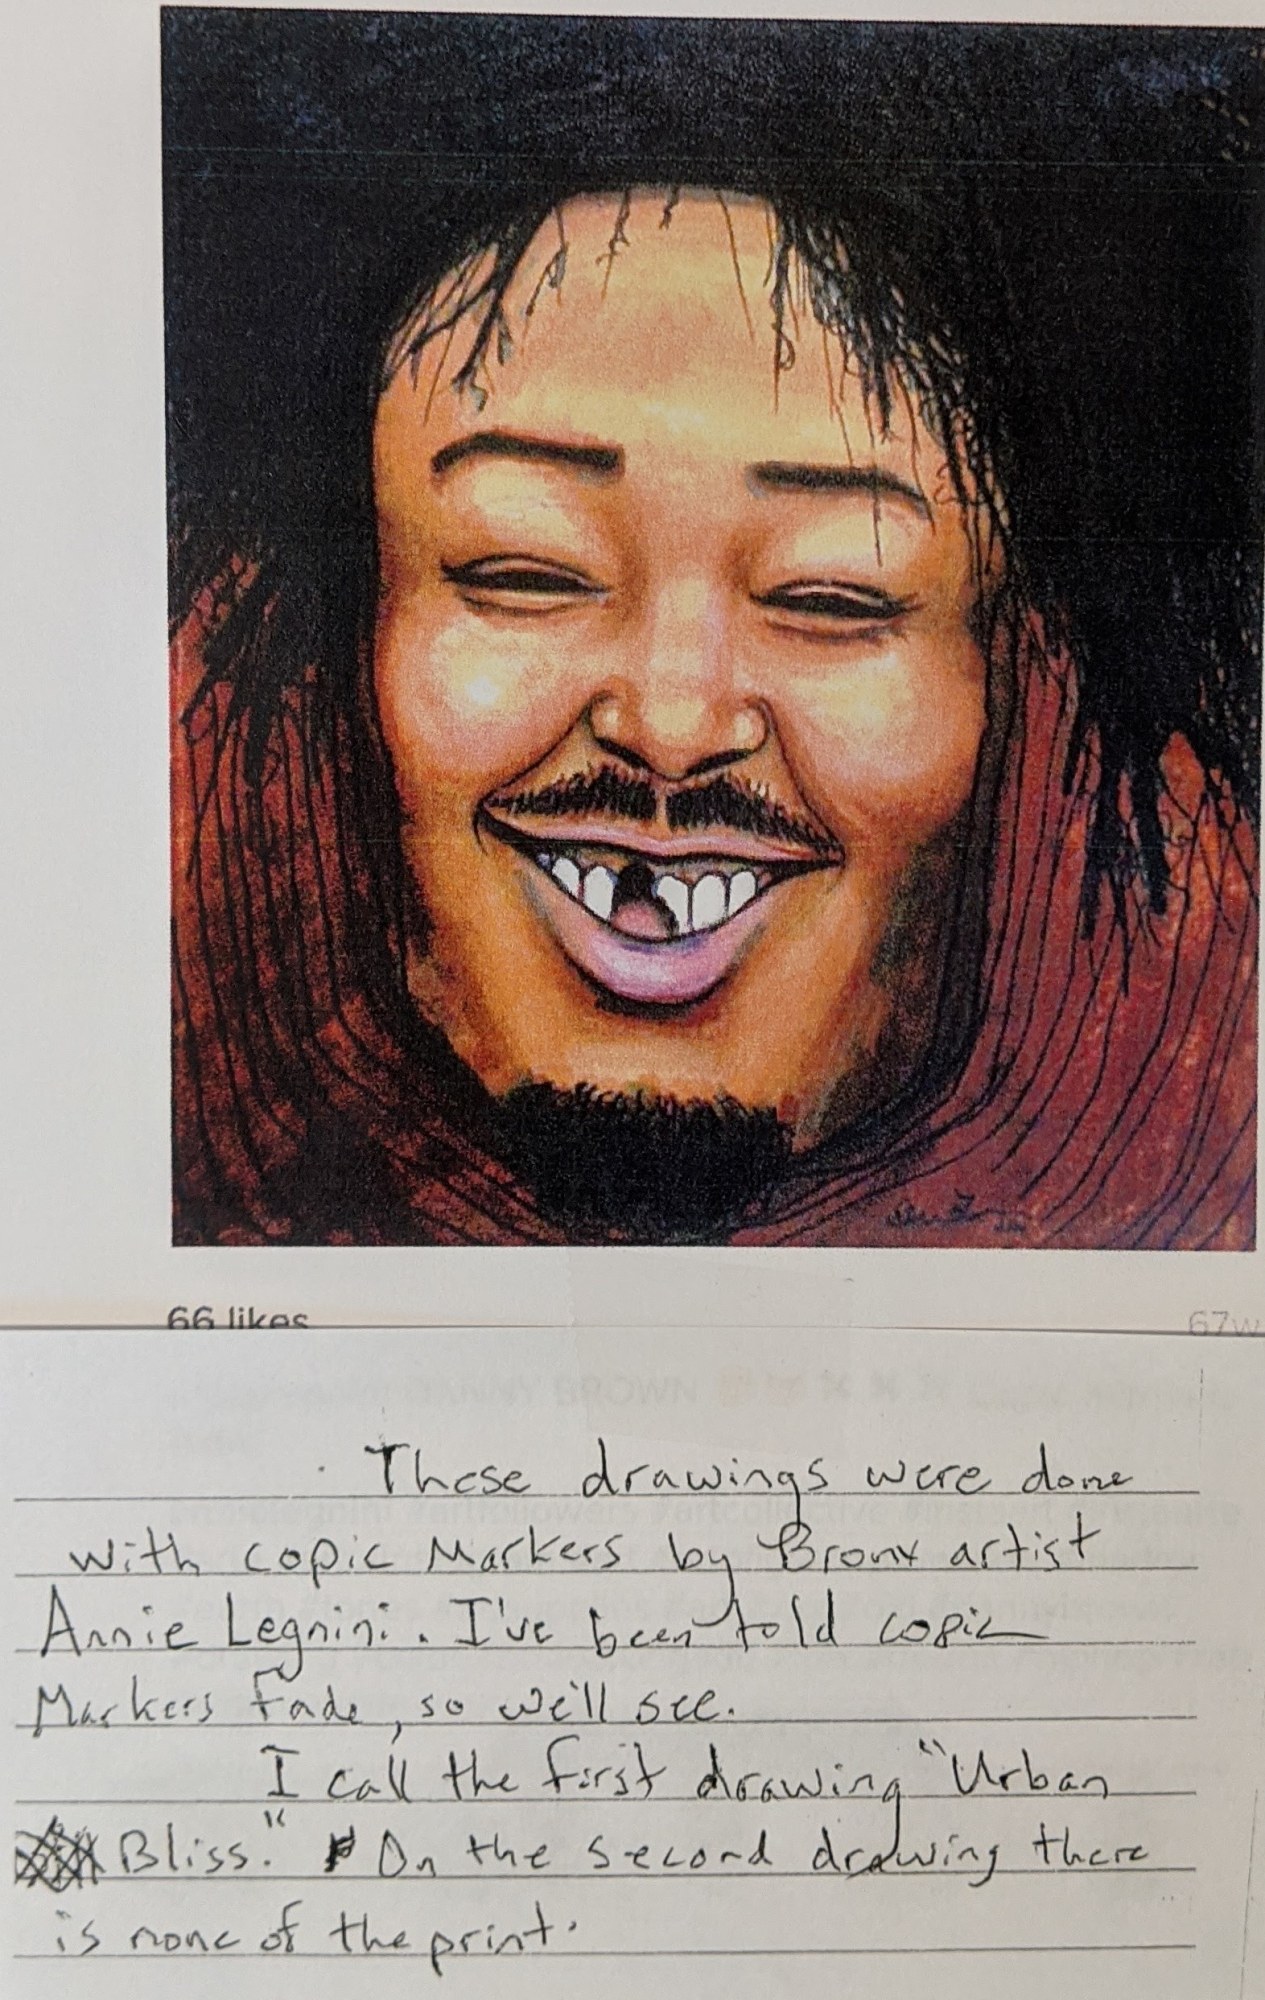 66 likes
67w
DANNY BROWN
These drawings were done
with copic Markers by Bronx artist
Annie Legnini. I've been told copic
Markers fade, so we'll see.
I call the first drawing "Urban
Bliss." On the second drawing there
is none of the print.